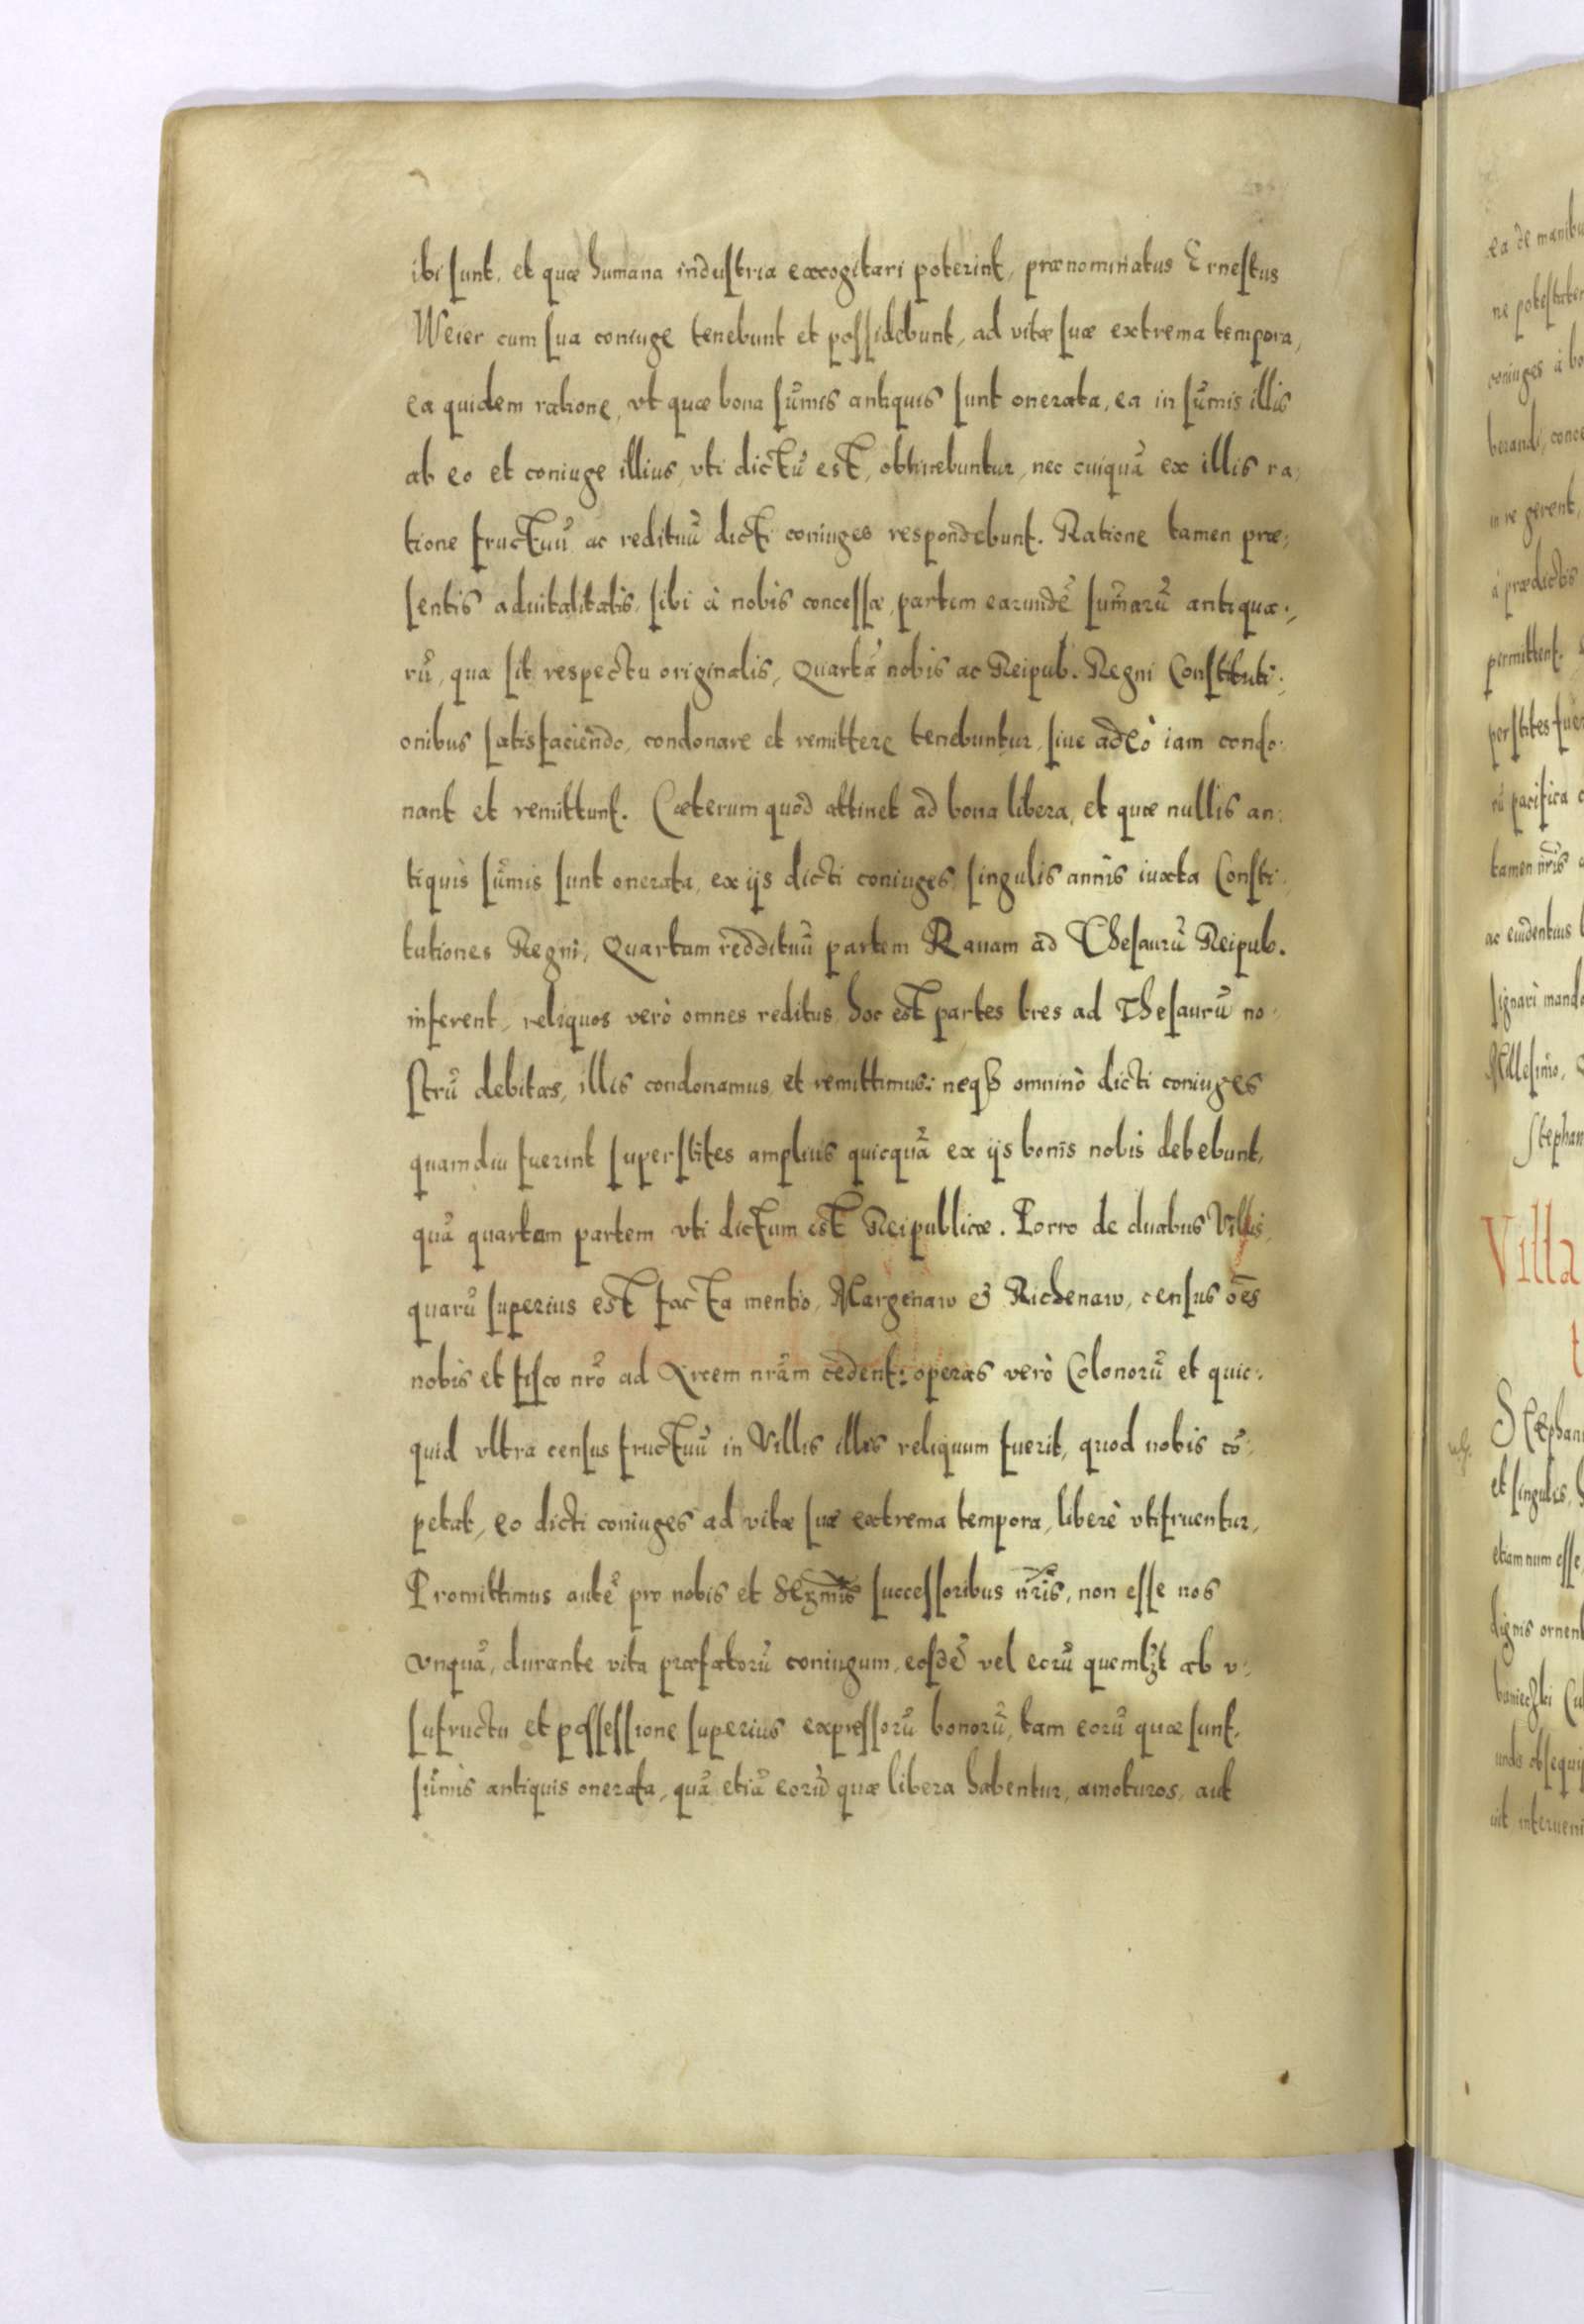 ibi sunt, et quæ humana industria excogitari poterint, prænominatus Ernestus
Weier cum sua coniuge tenebunt et possidebunt, ad vitæ suæ extrema tempora,
ea quidem ratione, vt quæ bona sũmis antiquis sunt onerata, ea in sũmis illis
ab eo et coniuge illius, vti dictũ est, obtinebuntur, nec cuiquã ex illis ra,
tione fructuũ ac redituũ dicti coniuges respondebunt. Ratione tamen præ,
sentis aduitalitatis, sibi à nobis concessæ, partem earundẽ sum̃arũ antiqua,
rũ, quæ sit respectu originalis, Quartã nobis ac Reipub. Regni Constituti,
onibus satisfaciendo, condonare et remittere tenebuntur, siue adeò iam condo,
nant et remittunt. Cæterum quod attinet ad bona libera, et quæ nullis an,
tiquis sũmis sunt onerata, ex ijs dicti coniuges singulis annis iuxta Consti,
tutiones Regni, Quartam reddituũ partem Rauam ad Thesaurũ Reipub.
inferent, reliquos verò omnes reditus hoc est partes tres ad Thesaurũ no,
strũ debitas, illis condonamus et remittimus: neqȝ omninò dicti coniuges
quamdiu fuerint superstites amplius quicquã ex ijs bonis nobis debebunt,
quã quartam partem vti dictum est Reipublicæ. Porro de duabus Villis,
quarũ superius est facta mentio, Margenaw & Richenaw, census oẽs
nobis et fisco nrõ ad Arcem nrãm cedent: operas verò Colonorũ et quic,
quid vltra census fructuũ in Villis illis reliquum fuerit, quod nobis cõ,
petat, eo dicti coniuges ad vitæ suæ extrema tempora, liberè vtifruentur,
Promittimus autẽ pro nobis et Serm̃is successoribus nr̃is, non esse nos
vnquã, durante vita præfatorũ coniugum, eosdẽ vel eorũ quemlȝt ab v,
sufructu et possessione superius expressorũ bonorũ, tam eorũ quæ sunt
sũmis antiquis onerata, quã etiã eorũ quæ libera habentur, amoturos, aut